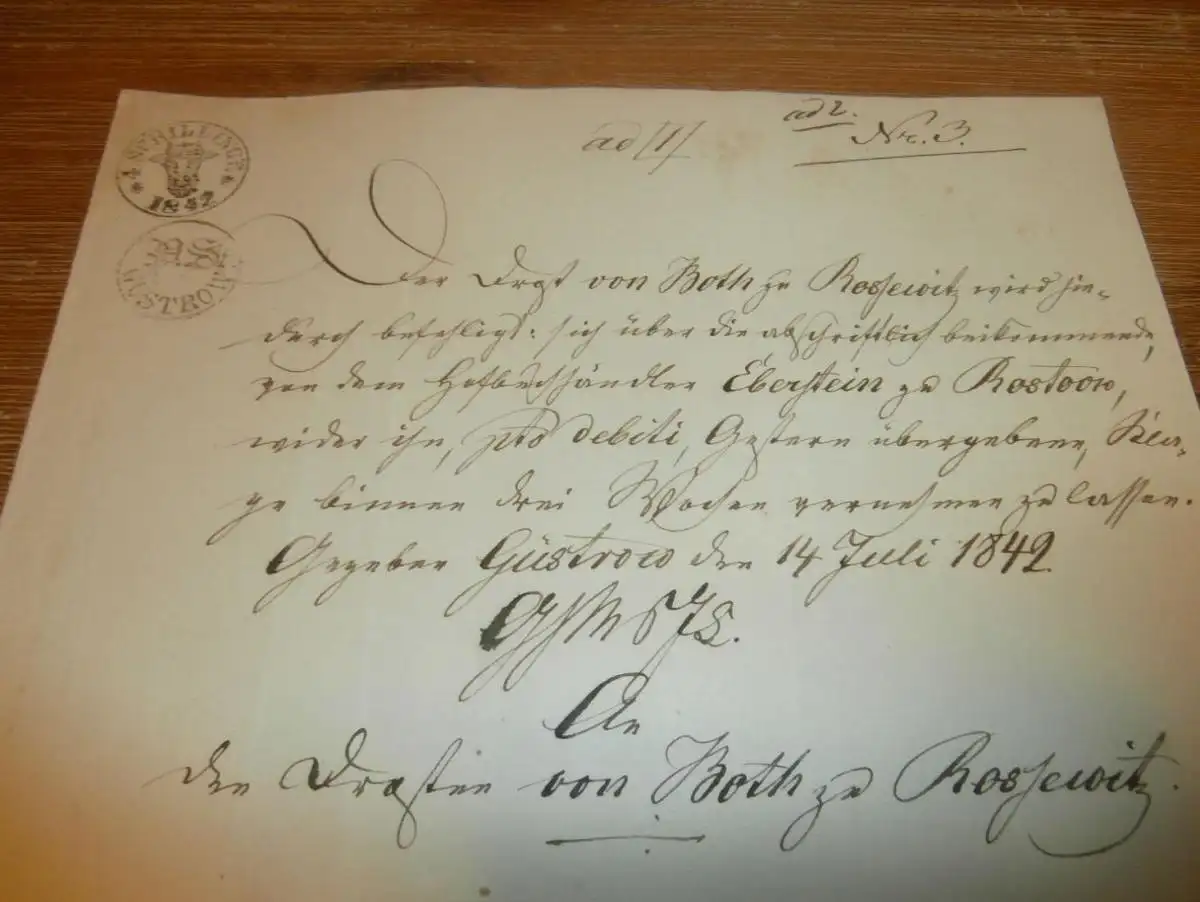 4 SCHILLINGE
1842
GÜSTROW
ad [1]
ad 2.
Nr. 3.
Der Drost von Both zu Rossewitz wird hie-
durch befehligt: sich über die abschriftlich beikommende,
von dem Hofbuchhändler Eberstein zu Rostock,
wider ihn, pto debiti, Gestern übergebene, Kla-
ge binnen drei Wochen vernehmen zu lassen.
Gegeben Güstrow den 14 Juli 1842
An
den Drosten von Both zu Rossewitz.